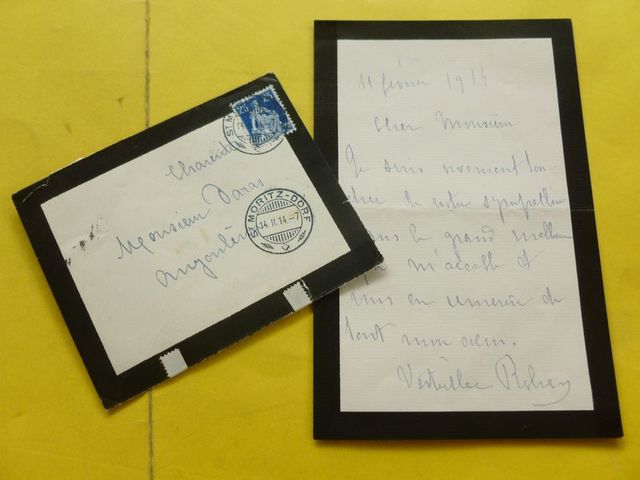 Charente
Monsieur Daras
Angoulême
25 25
ST MORITZ-DORF
14.II.14.-7
11 février 1914
Cher Monsieur
Je suis vivement tou
chée de votre sympathie
dans le grand malheur
qui m'accable et
vous en remercie de
tout mon cœur.